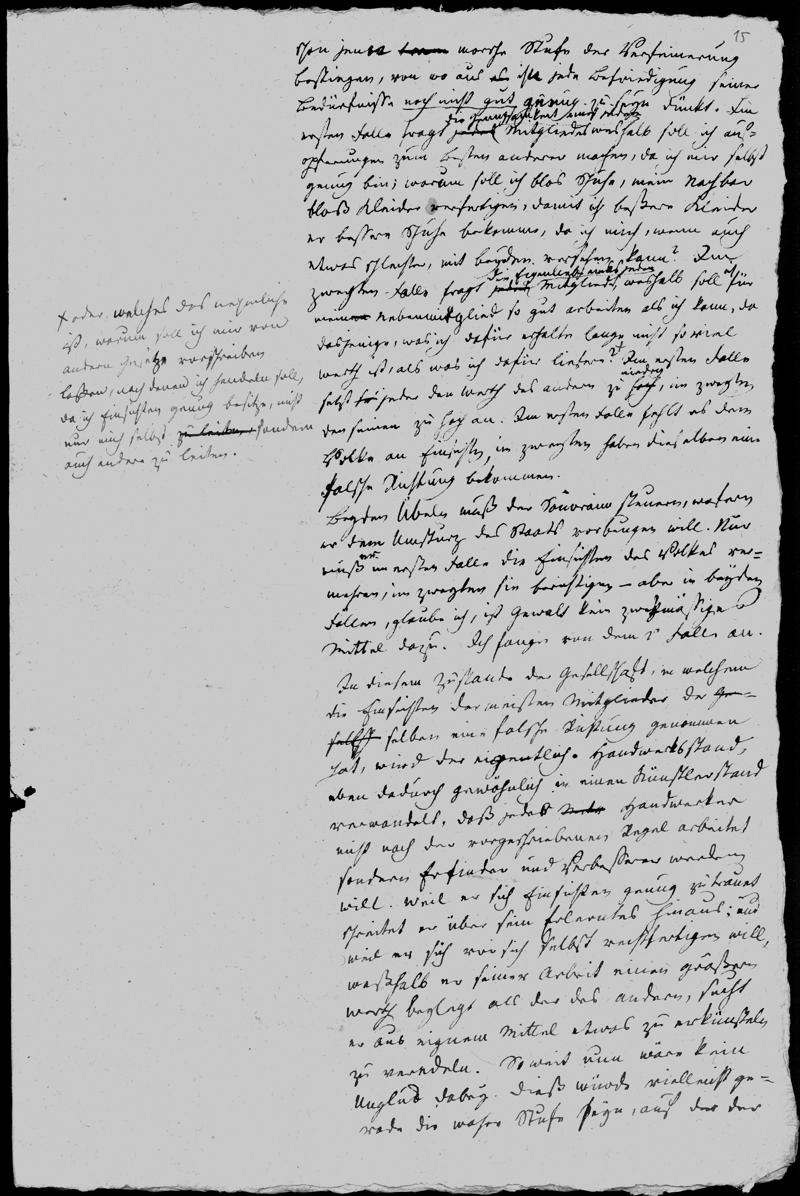 15
schon jene morsche Stufe der Verfeinerung
bestiegen, von wo aus ihr jede Befriedigung seiner
Bedürfnisse noch nicht gut genug zu seyn dünkt. Im
die Genügsamkeit eines jeden
ersten Falle fragt jedes Mitgliedes weshalb soll ich auf=
opferungen zum besten anderer machen, da ich mir selbst
genug bin; warum soll ich blos Schuhe, mein Nachbar
bloß Kleider verfertigen, damit ich bessere Kleider
er bessere Schuhe bekomme, da ich mich, wenn auch
etwas schlechter, mit beyden versehen kann? Im
die Eigenliebe eines jeden
zweyten Falle fragt jedes Mitglieds, weshalb soll ich für
mein Nebenmitglied so gut arbeiten als ich kann, da
dasjenige, was ich dafür erhalte lange nicht so viel
werth ist, als was ich dafür liefere? + Im ersten Falle
niedrig
setzt jeder den Werth des andern zu hoch, im zweyten
den seinen zu hoch an. Im ersten Falle fehlt es dem
Volke an Einsichten, im zweyten haben dieselben eine
falsche Richtung bekommen.
+ oder, welches das nehmliche
ist, warum soll ich mir von
andern Gesetze vorschreiben
lassen, nach denen ich handeln soll,
da ich Einsichten genug besitze, nicht
nur mich selbst zu leiten, sondern
auch andere zu leiten.
Beyden Übeln muß der Souverain steuern, wofern
er dem Umsturz des Staats vorbeugen will. Nur
er
muß im ersten Falle die Einsichten des Volkes ver=
mehren, im zweyten sie berichtigen – aber in beyden
Fällen, glaube ich, ist Gewalt kein zweckmässiges
Mittel dazu. Ich fange von dem Falle an.
In diesem Zustande der Gesellschaft, in welchem
die Einsichten der meisten Mitglieder der Ge=
sellsch selben eine falsche Richtung genommen
hat, wird der eigentliche Handwerksstand,
eben dadurch gewöhnlich in einen Künstlerstand
verwandelt, daß jeder Handwerker
nicht nach der vorgeschriebenen Regel arbeitet
sondern Erfinder und Verbesserer werden
will. Weil er sich Einsichten genug zutrauet
schreitet er über sein Erlerntes hinaus; und
weil er sich vor sich selbst rechtfertigen will,
weßhalb er seiner Arbeit einen größern
Werth beylegt als der des andern, sucht
er aus eignem Mittel etwas zu erkünsteln
zu veredeln. Soweit nun wäre kein
Unglück dabey. Dieß würde vielleicht ge=
rade die wahre Stufe seyn, auf der der